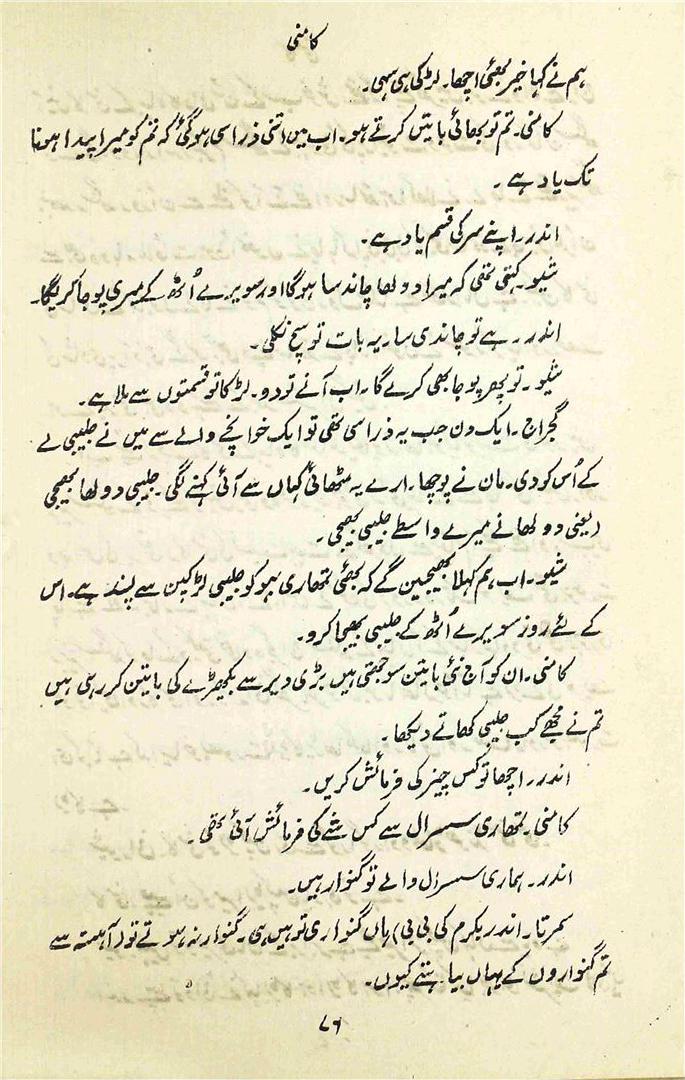 کامنی
ہم نے کہا خیر بھئی اچھا۔ لڑکی ہی سہی۔
کامنی۔ تم تو بھائی باتیں کرتے ہو۔ اب میں اتنی ذرا سی ہوگئی کہ تم کو میرا پیدا ہونا
تک یاد ہے۔
اندر۔ اپنے سر کی قسم یاد ہے۔
شیو۔ کہتی تھی کہ میرا دولھا چاند سا ہوگا اور سویرے اُٹھ کے میری پوجا کریگا۔
اندر۔ ہے تو چاند ہی سا۔ یہ بات تو سچ نکلی۔
شیو۔ تو پھر پوجا بھی کرے گا۔ اب آنے تو دو۔ لڑکا تو قسمتوں سے ملا ہے۔
گجراج۔ ایک دن جب یہ ذرا سی تھی تو ایک خوانچے والے سے میں نے جلیبی لے
کے اُس کو دی۔ ماں نے پوچھا۔ ارے یہ مٹھائی کہاں سے آئی کہنے لگی۔ جلیبی دولھا بھیجی
(یعنی دولھا نے میرے واسطے جلیبی بھیجی۔
شیو۔ اب ہم کہلا بھیجین گے کہ بھئی تمھاری بہو کو جلیبی لڑکپن سے پسند ہے۔ اس
کے لئے روز سویرے اُٹھ کے جلیبی بھیجا کرو۔
کامنی۔ ان کو آج نئی باتین سوجھتی ہیں بڑی دیر سے بکھیڑے کی باتین کر رہی ہیں
تم نے مجھے کب جلیبی کھاتے دیکھا۔
اندر۔ اچھا تو کس چیز کی فرمائش کریں۔
کامنی۔ تمھاری سسرال سے کس شے کی فرمائش آئی تھی۔
اندر۔ ہماری سسرال والے تو گنوار ہیں۔
سمرتا۔ اندر بکرم کی بی بی) ہاں گنوار ہی تو ہیں ہی۔ گنوار نہ ہوتے تو (آہستہ سے
تم گنواروں کے یہاں بیاہتے کیوں۔
۷۶